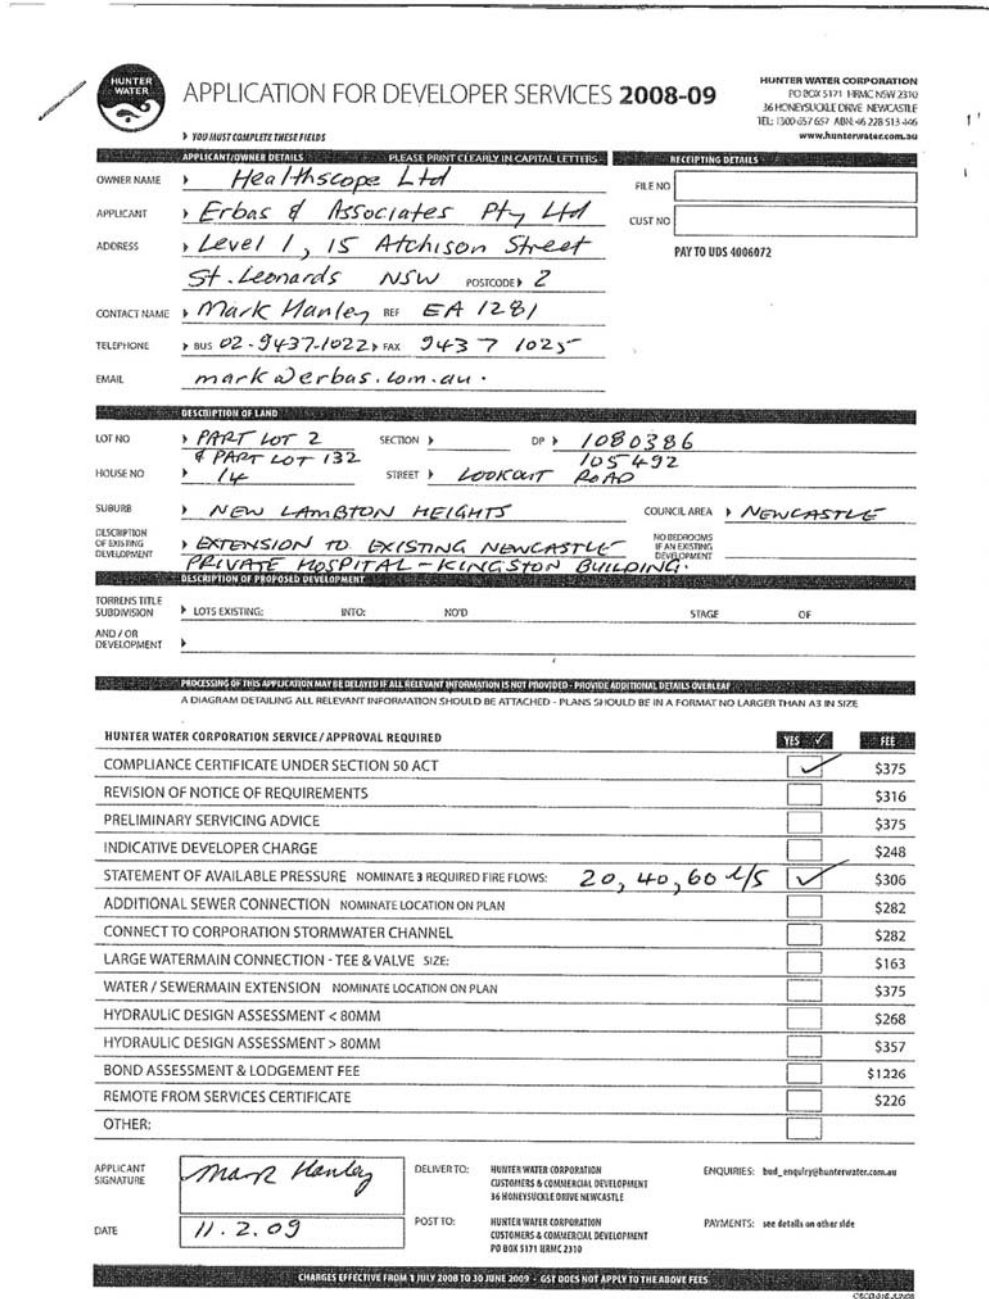 HUNTER
WATER
APPLICATION FOR DEVELOPER SERVICES 2008-09
HUNTER WATER CORPORATION
PO BOX 5171 HRMC NSW 2310
36 HONEYSUCKLE DRIVE NEWCASTLE
TEL: 1300 657 657 ABN: 46 228 513 446
www.hunterwater.com.au
YOU MUST COMPLETE THESE FIELDS
APPLICANT/OWNER DETAILS PLEASE PRINT CLEARLY IN CAPITAL LETTERS
RECEIPTING DETAILS
OWNER NAME Healthscope Ltd
FILE NO
APPLICANT Erbas & Associates Pty Ltd
CUST NO
ADDRESS Level 1, 15 Atchison Street
PAY TO UDS 4006072
St. Leonards NSW POSTCODE 2
CONTACT NAME Mark Hanley REF EA 1281
TELEPHONE BUS 02-9437-1022 FAX 9437 1025
EMAIL mark@erbas.com.au.
DESCRIPTION OF LAND
LOT NO PART LOT 2 SECTION DP 1080386
& PART LOT 132 105492
HOUSE NO 14 STREET LOOKOUT ROAD
SUBURB NEW LAMBTON HEIGHTS COUNCIL AREA NEWCASTLE
DESCRIPTION OF EXISTING DEVELOPMENT EXTENSION TO EXISTING NEWCASTLE NO BEDROOMS IF AN EXISTING DEVELOPMENT
PRIVATE HOSPITAL - KINGSTON BUILDING.
DESCRIPTION OF PROPOSED DEVELOPMENT
TORRENS TITLE
SUBDIVISION LOTS EXISTING: INTO: NO'D STAGE OF
AND / OR
DEVELOPMENT
PROCESSING OF THIS APPLICATION MAY BE DELAYED IF ALL RELEVANT INFORMATION IS NOT PROVIDED - PROVIDE ADDITIONAL DETAILS OVERLEAF
A DIAGRAM DETAILING ALL RELEVANT INFORMATION SHOULD BE ATTACHED - PLANS SHOULD BE IN A FORMAT NO LARGER THAN A3 IN SIZE
HUNTER WATER CORPORATION SERVICE / APPROVAL REQUIRED YES ✓ FEE
COMPLIANCE CERTIFICATE UNDER SECTION 50 ACT ✓ $375
REVISION OF NOTICE OF REQUIREMENTS $316
PRELIMINARY SERVICING ADVICE $375
INDICATIVE DEVELOPER CHARGE $248
STATEMENT OF AVAILABLE PRESSURE NOMINATE 3 REQUIRED FIRE FLOWS: 20, 40, 60 L/S ✓ $306
ADDITIONAL SEWER CONNECTION NOMINATE LOCATION ON PLAN $282
CONNECT TO CORPORATION STORMWATER CHANNEL $282
LARGE WATERMAIN CONNECTION - TEE & VALVE SIZE: $163
WATER / SEWERMAIN EXTENSION NOMINATE LOCATION ON PLAN $375
HYDRAULIC DESIGN ASSESSMENT < 80MM $268
HYDRAULIC DESIGN ASSESSMENT > 80MM $357
BOND ASSESSMENT & LODGEMENT FEE $1226
REMOTE FROM SERVICES CERTIFICATE $226
OTHER:
APPLICANT
SIGNATURE Mark Hanley
DELIVER TO: HUNTER WATER CORPORATION
CUSTOMERS & COMMERCIAL DEVELOPMENT
36 HONEYSUCKLE DRIVE NEWCASTLE
ENQUIRIES: bud_enquiry@hunterwater.com.au
DATE 11.2.09
POST TO: HUNTER WATER CORPORATION
CUSTOMERS & COMMERCIAL DEVELOPMENT
PO BOX 5171 HRMC 2310
PAYMENTS: see details on other side
CHARGES EFFECTIVE FROM 1 JULY 2008 TO 30 JUNE 2009 - GST DOES NOT APPLY TO THE ABOVE FEES